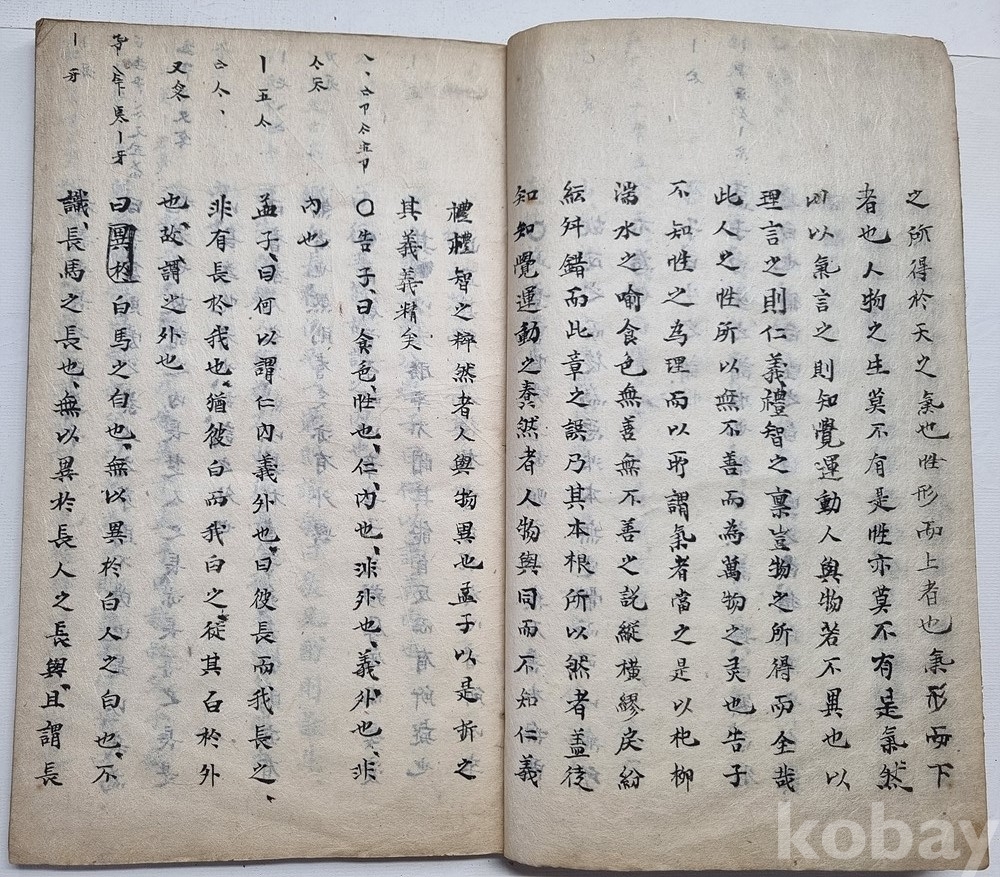 之所得於天之氣也性形而上者也氣形而下
者也人物之生莫不有是性亦莫不有是氣然
以氣言之則知覺運動人與物若不異也以
理言之則仁義禮智之稟豈物之所得而全哉
此人之性所以無不善而為萬物之灵也告子
不知性之为理而以所謂氣者當之是以杞柳
湍水之喻食色無善無不善之説縱橫繆戾紛
紜舛錯而此章之誤乃其本根所以然者盖徒
知知覺運動之蠢然者人物與同而不知仁義
禮禮智之粹然者人與物異也孟子以是折之
其義義精矣
〇告子、曰食色、性也、仁、内也、非外也、義外也、非
内也
孟子、曰何以謂仁内義外也、曰彼長而我長之、
非有長於我也、猶彼白而我白之、從其白於外
也、故、謂之外也
曰異於白馬之白也、無以異於白人之白也、不
識、長馬之長也、無以異於長人之長與、且謂長
kobay